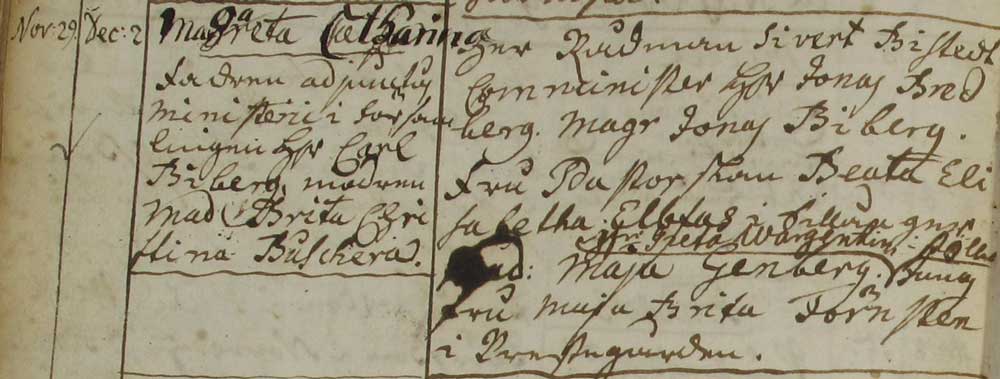 Nov: 29. Dec: 2
Magreta Catharina
Fadren adjunctus
Ministerii i församlingen
lingen Hr Carl
Biberg, modren
Mad. Brita Chri
stina Buschera.
Her Rådman Sivert Bistedt
Comminister Hr Jonas Bred
berg. Magr Jonas Biberg.
Fru Pastorskan Beata Eli
sabetha
Greta Wargentin
Maja Genberg.
Fru Maja Brita Törnsten
i Prestegården.